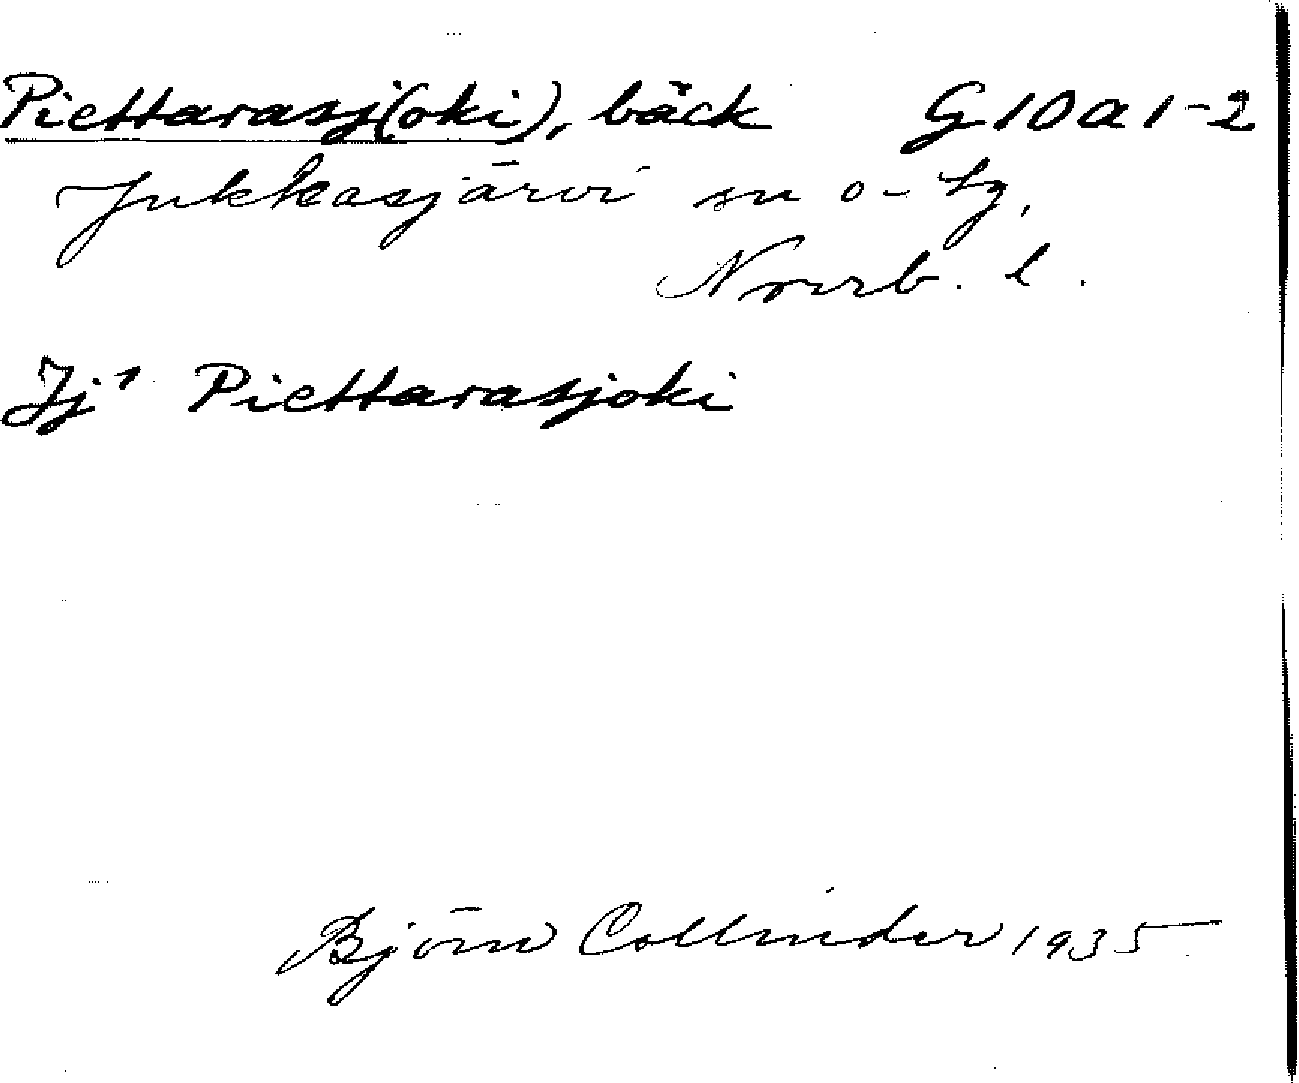 Piettarasj(oki), bäck G10a1-2
Jukkasjärvi sn o- tg,
Norrb. l.
Jj¹ Piettarasjoki
Björn Collinder 1935